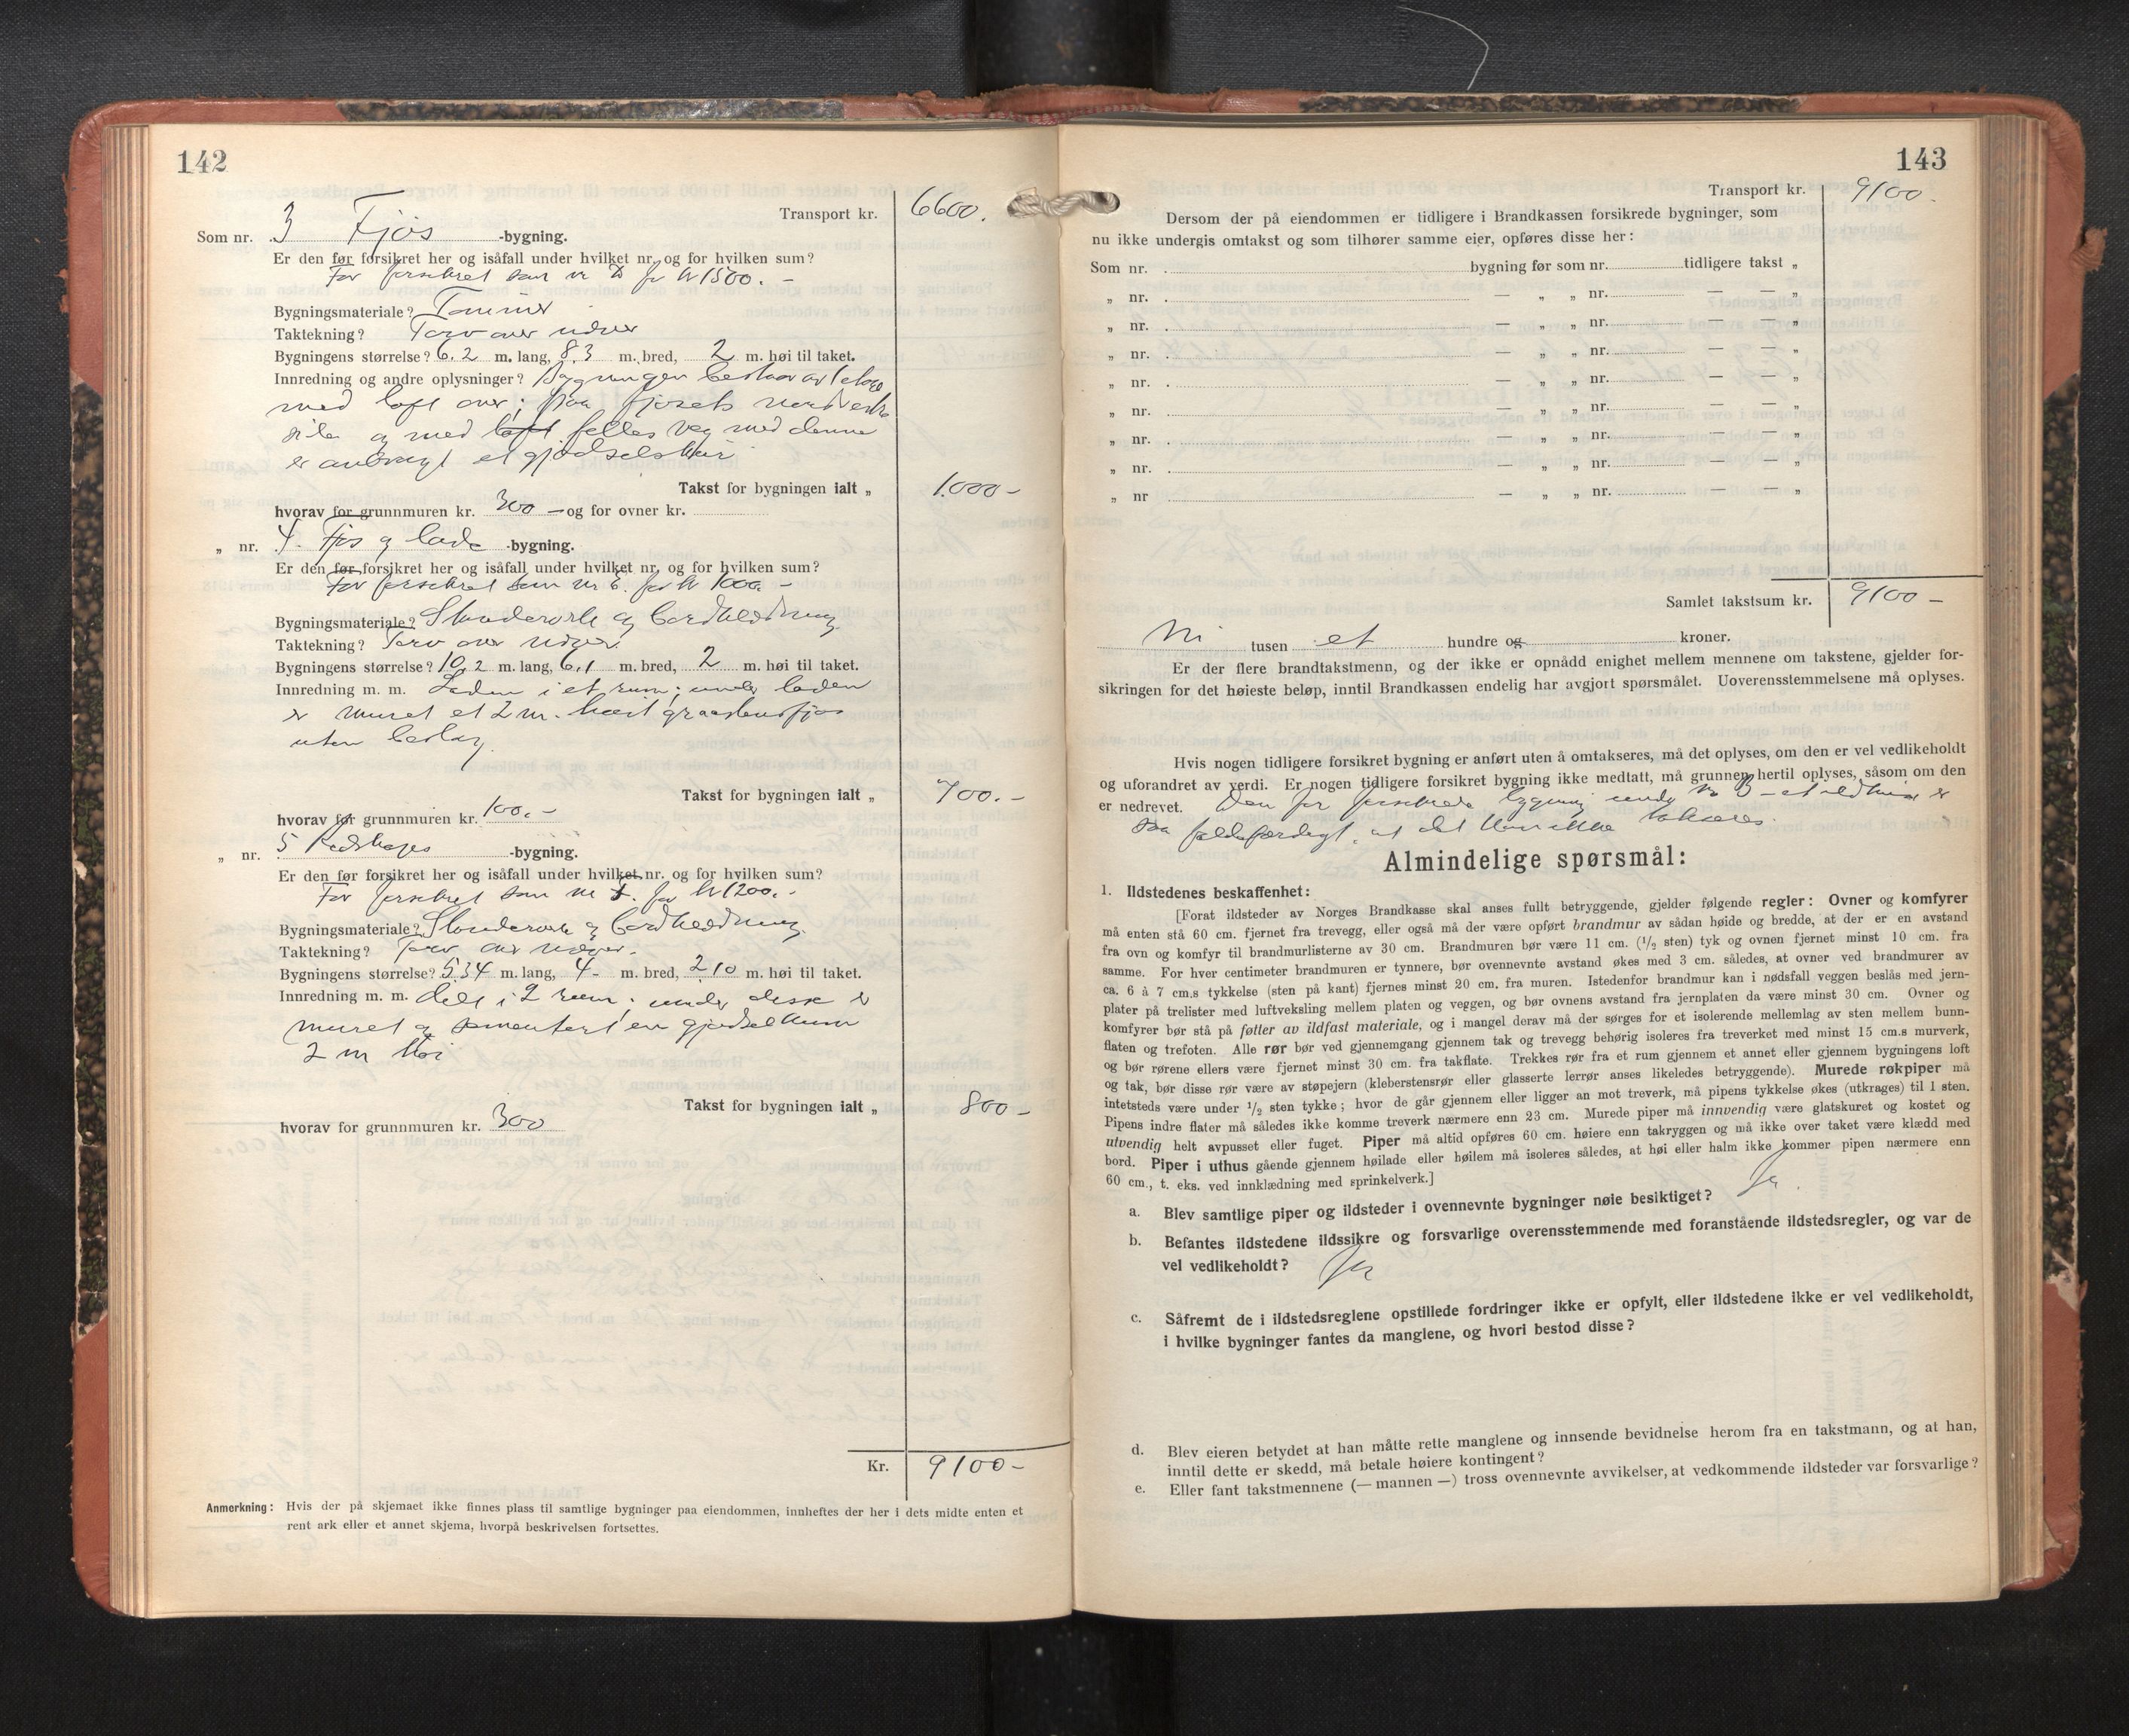 142
Transport kr. 6600.
Som nr. 3 Fjøs -bygning.
Er den før forsikret her og isåfall under hvilket nr. og for hvilken sum?
Før forsikret som nr D for kr 1500.-
Bygningsmateriale? Tømmer
Taktekning? Torv over næver
Bygningens størrelse? 6,2 m. lang, 8,3 m. bred, 2 m. høi til taket.
Innredning og andre oplysninger? Bygningen bestaar av 1 etage
med loft over; paa fjosets nordvestre
side og med loft felles veg med denne
er anbragt et gjødselskur
Takst for bygningen ialt „ 1000-
hvorav for grunnmuren kr. 300 - og for ovner kr.
„ nr. 4. Fjøs og lade -bygning.
Er den før forsikret her og isåfall under hvilket nr. og for hvilken sum?
Før forsikret som nr E. for kr 1000.-
Bygningsmateriale? Stenderverk og bordklædning
Taktekning? Torv over næver.
Bygningens størrelse? 10,2 m. lang, 6,1 m. bred, 2 m. høi til taket.
Innredning m. m. Laden i et rum; under laden
er muret et 2 m. høit graastensfjøs
uten beslag.
Takst for bygningen ialt „ 700.-
hvorav for grunnmuren kr. 100.-
„ nr. 5 Redskaps -bygning.
Er den før forsikret her og isåfall under hvilket nr. og for hvilken sum?
Før forsikret som nr F. for kr 1200.-
Bygningsmateriale? Stenderverk og bordklædning.
Taktekning? Torv over næver.
Bygningens størrelse? 5,34 m. lang, 4- m. bred, 2,10 m. høi til taket.
Innredning m. m. delt i 2 rum; under disse er
muret og sementert en gjødselkum
2 m høi
Takst for bygningen ialt „ 800-
hvorav for grunnmuren kr. 300
Kr. 9100-
Anmerkning: Hvis der på skjemaet ikke finnes plass til samtlige bygninger paa eiendommen, innheftes der her i dets midte enten et
rent ark eller et annet skjema, hvorpå beskrivelsen fortsettes.
143
Transport kr. 9100.
Dersom der på eiendommen er tidligere i Brandkassen forsikrede bygninger, som
nu ikke undergis omtakst og som tilhører samme eier, opføres disse her:
Som nr. bygning før som nr. tidligere takst „
„ nr. — „ „ nr. — — „
„ nr. — „ „ nr. — — „
„ nr. — „ „ nr. — — „
„ nr. — „ „ nr. — — „
„ nr. — „ „ nr. — — „
„ nr. — „ „ nr. — — „
„ nr. — „ „ nr. — — „
„ nr — „ „ nr. — — „
Samlet takstsum kr. 9100-
Ni tusen et hundre og kroner.
Er der flere brandtakstmenn, og der ikke er opnådd enighet mellem mennene om takstene, gjelder for-
sikringen for det høieste beløp, inntil Brandkassen endelig har avgjort spørsmålet. Uoverensstemmelsene må oplyses.
Hvis nogen tidligere forsikret bygning er anført uten å omtakseres, må det oplyses, om den er vel vedlikeholdt
og uforandret av verdi. Er nogen tidligere forsikret bygning ikke medtatt, må grunnen hertil oplyses, såsom om den
er nedrevet. Den før forsikrede bygning under nr B - et ildhus er
saa faldefærdigt, at det kan ikke takseres.
Almindelige spørsmål:
1. Ildstedenes beskaffenhet:
[Forat ildsteder av Norges Brandkasse skal anses fullt betryggende, gjelder følgende regler: Ovner og komfyrer
må enten stå 60 cm. fjernet fra trevegg, eller også må der være opført brandmur av sådan høide og bredde, at der er en avstand
fra ovn og komfyr til brandmurlisterne av 30 cm. Brandmuren bør være 11 cm. (1/2 sten) tyk og ovnen fjernet minst 10 cm. fra
samme. For hver centimeter brandmuren er tynnere, bør ovennevnte avstand økes med 3 cm. således, at ovner ved brandmurer av
ca. 6 à 7 cm.s tykkelse (sten på kant) fjernes minst 20 cm. fra muren. Istedenfor brandmur kan i nødsfall veggen beslås med jern-
plater på trelister med luftveksling mellem platen og veggen, og bør ovnens avstand fra jernplaten da være minst 30 cm. Ovner og
komfyrer bør stå på føtter av ildfast materiale, og i mangel derav må der sørges for et isolerende mellemlag av sten mellem bunn-
flaten og trefoten. Alle rør bør ved gjennemgang gjennem tak og trevegg behørig isoleres fra treverket med minst 15 cm.s murverk,
og bør rørene ellers være fjernet minst 30 cm. fra takflate. Trekkes rør fra et rum gjennem et annet eller gjennem bygningens loft
og tak, bør disse rør være av støpejern (kleberstensrør eller glasserte lerrør anses likeledes betryggende). Murede røkpiper må
intetsteds være under 1/2 sten tykke; hvor de går gjennem eller ligger an mot treverk, må pipens tykkelse økes (utkrages) til 1 sten.
Pipens indre flater må således ikke komme treverk nærmere enn 23 cm. Murede piper må innvendig være glatskuret og kostet og
utvendig helt avpusset eller fuget. Piper må altid opføres 60 cm. høiere enn takryggen og må ikke over taket være klædd med
bord. Piper i uthus gående gjennem høilade eller høilem må isoleres således, at høi eller halm ikke kommer pipen nærmere enn
60 cm., t. eks. ved innklædning med sprinkelverk.]
a. Blev samtlige piper og ildsteder i ovennevnte bygninger nøie besiktiget? Ja.
b. Befantes ildstedene ildssikre og forsvarlige overensstemmende med foranstående ildstedsregler, og var de
vel vedlikeholdt? Ja
c. Såfremt de i ildstedsreglene opstillede fordringer ikke er opfylt, eller ildstedene ikke er vel vedlikeholdt,
i hvilke bygninger fantes da manglene, og hvori bestod disse?
d. Blev eieren betydet at han måtte rette manglene og innsende bevidnelse herom fra en takstmann, og at han,
inntil dette er skedd, må betale høiere kontingent?
e. Eller fant takstmennene (— mannen —) tross ovennevnte avvikelser, at vedkommende ildsteder var forsvarlige?